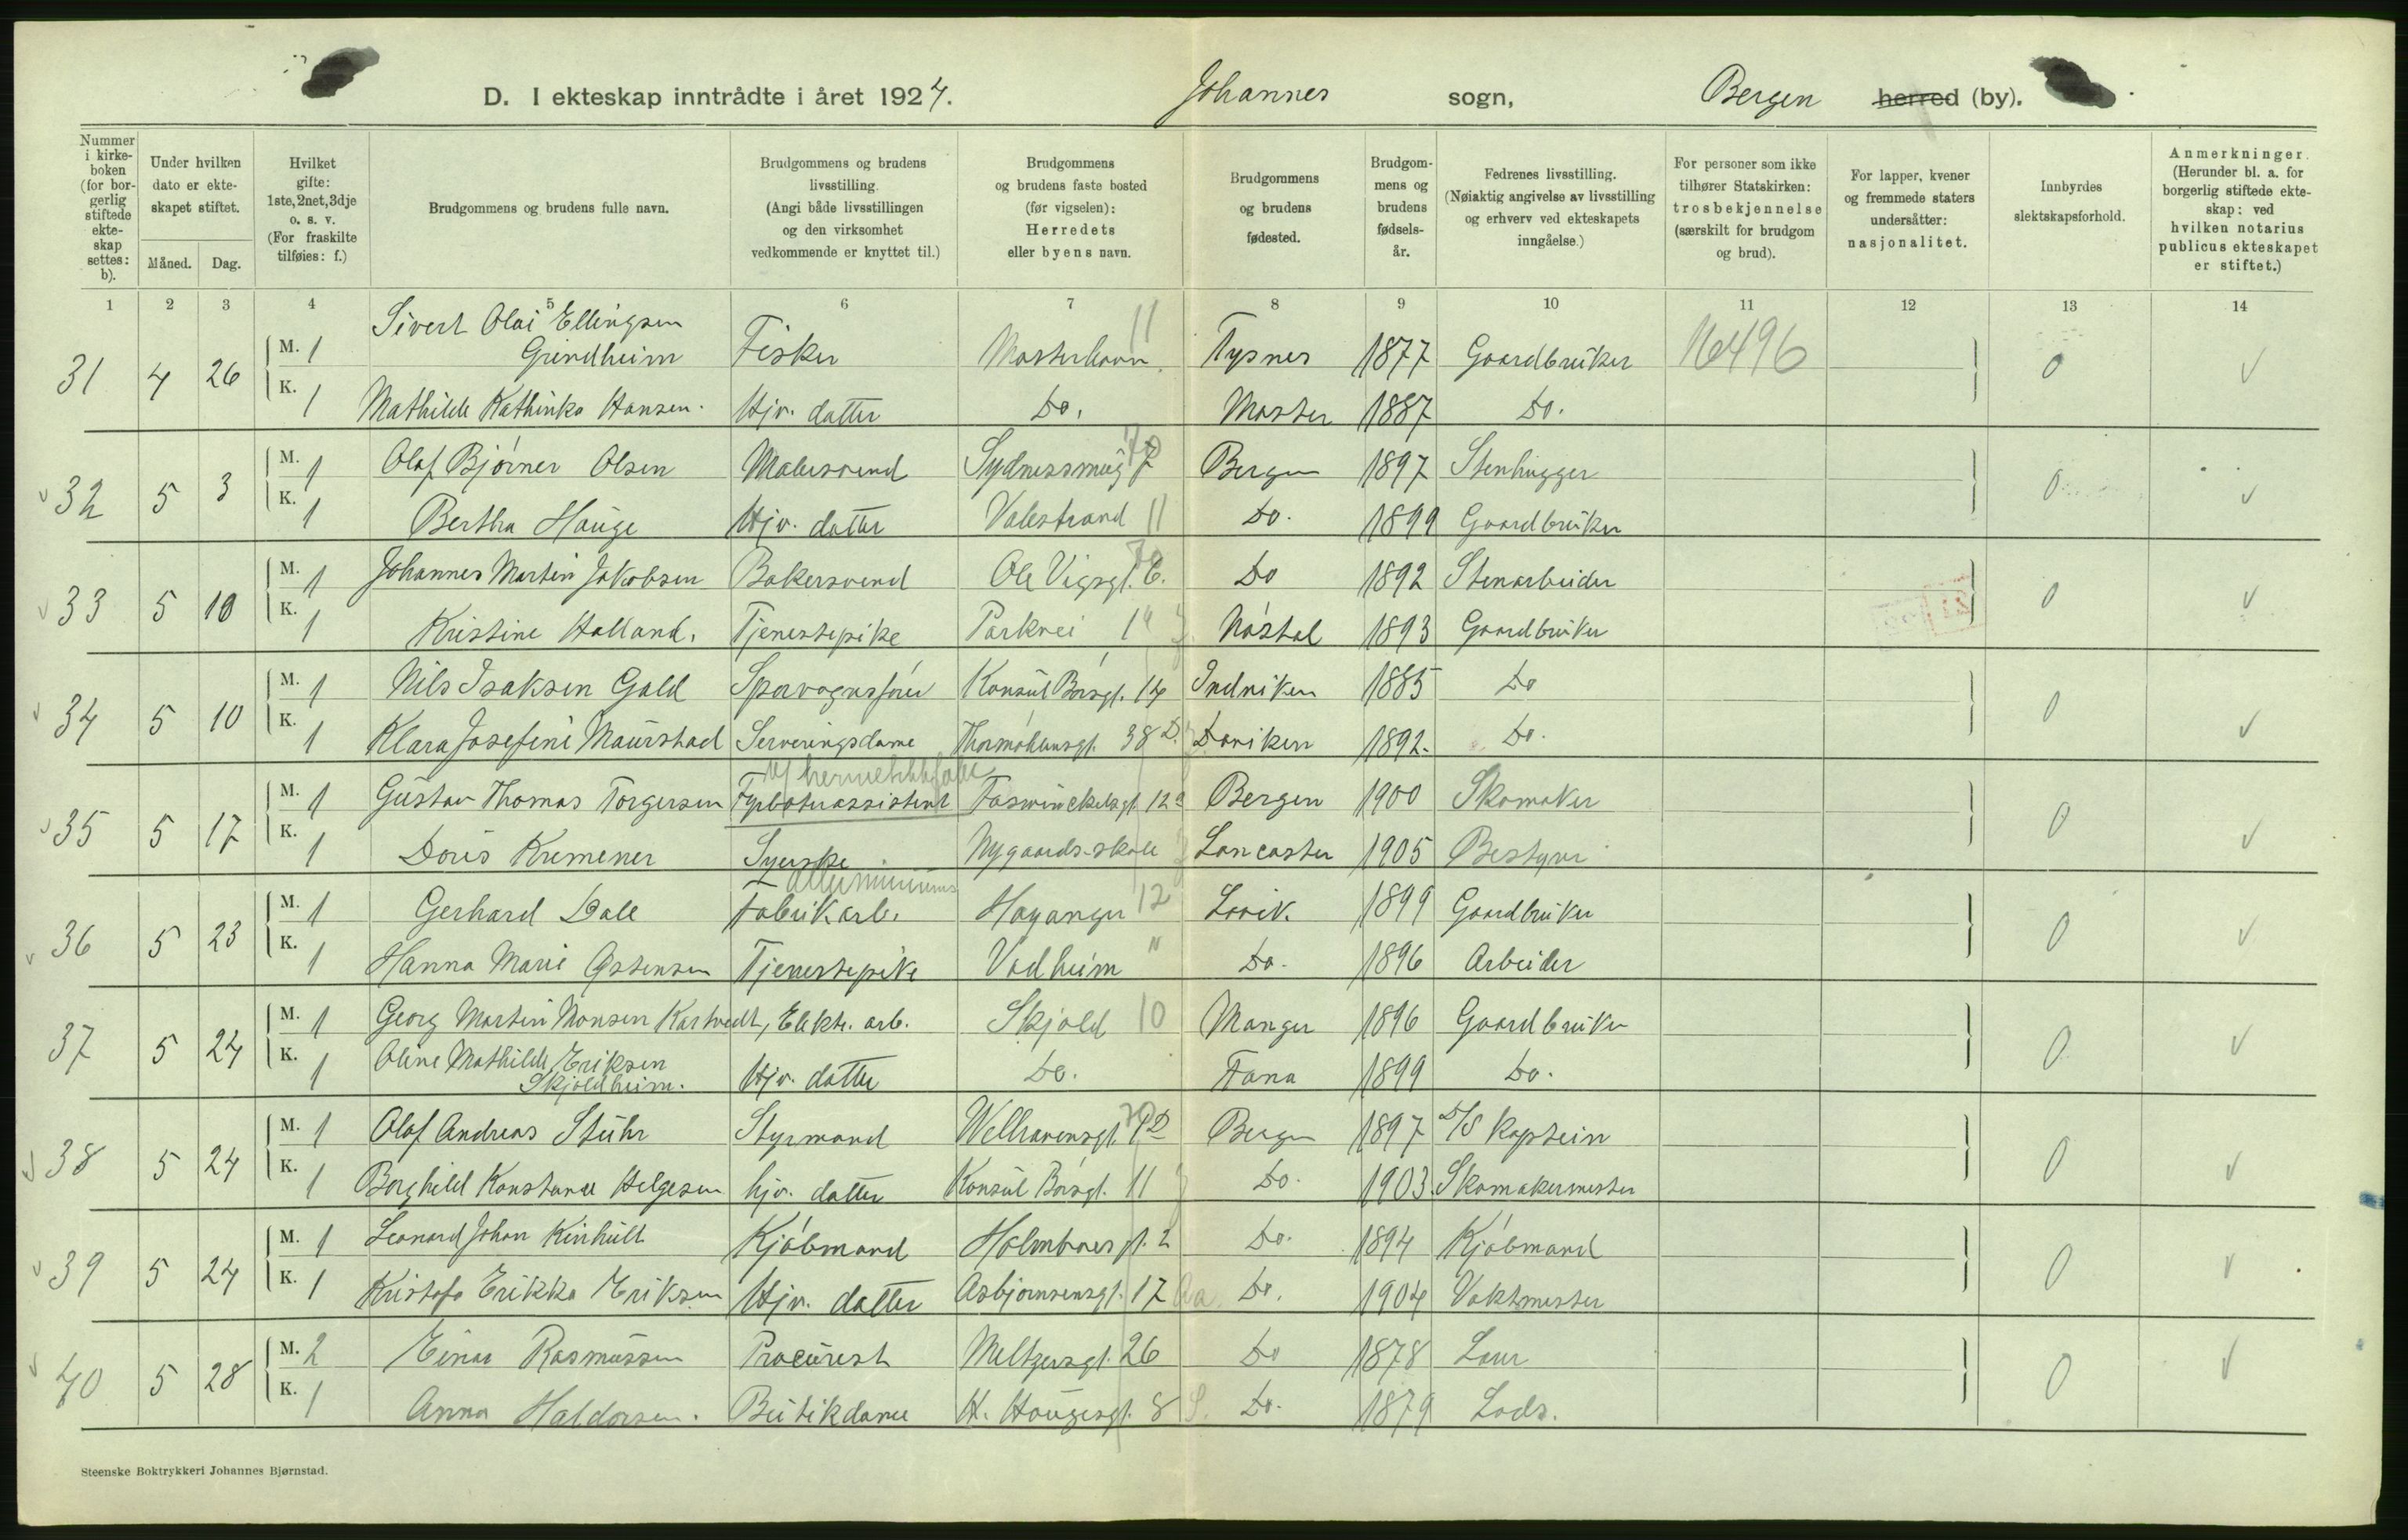 D. I ekteskap inntrådte i året 1924. Johannes sogn, Bergen herred (by).
Nummer i kirke-boken (for bor-gerlig stiftede ekte-skap settes: b).
Under hvilken dato er ekte-skapet stiftet.
Måned. Dag.
Hvilket gifte: 1ste, 2net, 3dje o. s. v. (For fraskilte tilføies: f.)
Brudgommens og brudens fulle navn.
Brudgommens og brudens livsstilling. (Angi både livsstillingen og den virksomhet vedkommende er knyttet til.)
Brudgommens og brudens faste bosted (før vigselen): Herredets eller byens navn.
Brudgommens og brudens fødested.
Brudgom-mens og brudens fødsels-år.
Fedrenes livsstilling. (Nøiaktig angivelse av livsstilling og erhverv ved ekteskapets inngåelse.)
For personer som ikke tilhører Statskirken: trosbekjennelse (særskilt for brudgom og brud).
For lapper, kvener og fremmede staters undersåtter: nasjonalitet.
Innbyrdes slektskapsforhold.
Anmerkninger. (Herunder bl. a. for borgerlig stiftede ekte-skap: ved hvilken notarius publicus ekteskapet er stiftet.)
1 2 3 4 5 6 7 8 9 10 11 12 13 14
31 4 26 M. 1 Sivert Olai Ellingsen Grindheim Fisker Mosterhavn 11 Tysnes 1877 Gaardbruker 16496 0 ✓
K. 1 Mathilde Kathinka Hansen. Hjv. datter Do. Moster 1887 Do.
32 5 3 M. 1 Olaf Bjørner Olsen Malersvend Bergen 1897 Stenhugger 0 ✓
K. 1 Bertha Hauge Hjv. datter Valestrand 11 Do. 1899 Gaardbruker
33 5 10 M. 1 Johannes Martin Jakobsen Bakersvend Ole Vigsgt. 6. Do 1892 Stenarbeider 0 ✓
K. 1 Kristine Halland. Tjenestepike Parkvei 1a 1893 Gaardbruker
34 5 10 M. 1 Nils Isaksen Gald Sporvognsfører Konsul Børsgt. 14 Indviken 1885 Do 0 ✓
K. 1 Klara Josefine Maurstad Serveringsdame Thormøhlensgt. 38 D. Daviken 1892. Do.
35 5 17 M. 1 Gustav Thomas Torgersen Fyrbøterassistent Foswinckelsgt. 12 Bergen 1900 Skomaker 0 ✓
K. 1 Doris Kremener Syerske. Nygaards-skole Lancaster 1905 Bestyrer
36 5 23 M. 1 Gerhard Dale alluminiums Fabrikarb. Høyanger 12 Lavik. 1899 Gaardbruker 0 ✓
K. 1 Hanna Marie Østensen Tjenestepike Vadheim " Do. 1896 Arbeider
37 5 24 M. 1 Georg Martin Monsen Kartvedt, Elektr. arb. Skjold 10 Manger 1896 Gaardbruker 0 ✓
K. 1 Oline Mathilde Eriksen Skjoldheim. Hjv. datter Do. Fana 1899 Do.
38 5 24 M. 1 Olaf Andreas Stuhr Styrmand Welhavensgt. Bergen 1897 D/S Kaptein 0 ✓
K. 1 Borghild Konstanse Helgesen hjv. datter Konsul Børsgt. 11 Do. 1903. Skomakermester
39 5 24 M. 1 Leonard Johan Kinhult Kjøbmand Holmboesgt. 2 Do. 1894 Kjøbmand 0 ✓
K. 1 Kristofa Erikka Eriksen Hjv. datter Asbjørnsensgt. 17 Do. 1904 Vaktmester
40 5 28 M. 2 Einar Rasmussen Procurist Meltzersgt. 26 Do 1878 0 ✓
K. 1 Anna Haldorsen. Butikdame H. Haugesgt. 8 Do. 1879 Lods.
Steenske Boktrykkeri Johannes Bjørnstad.